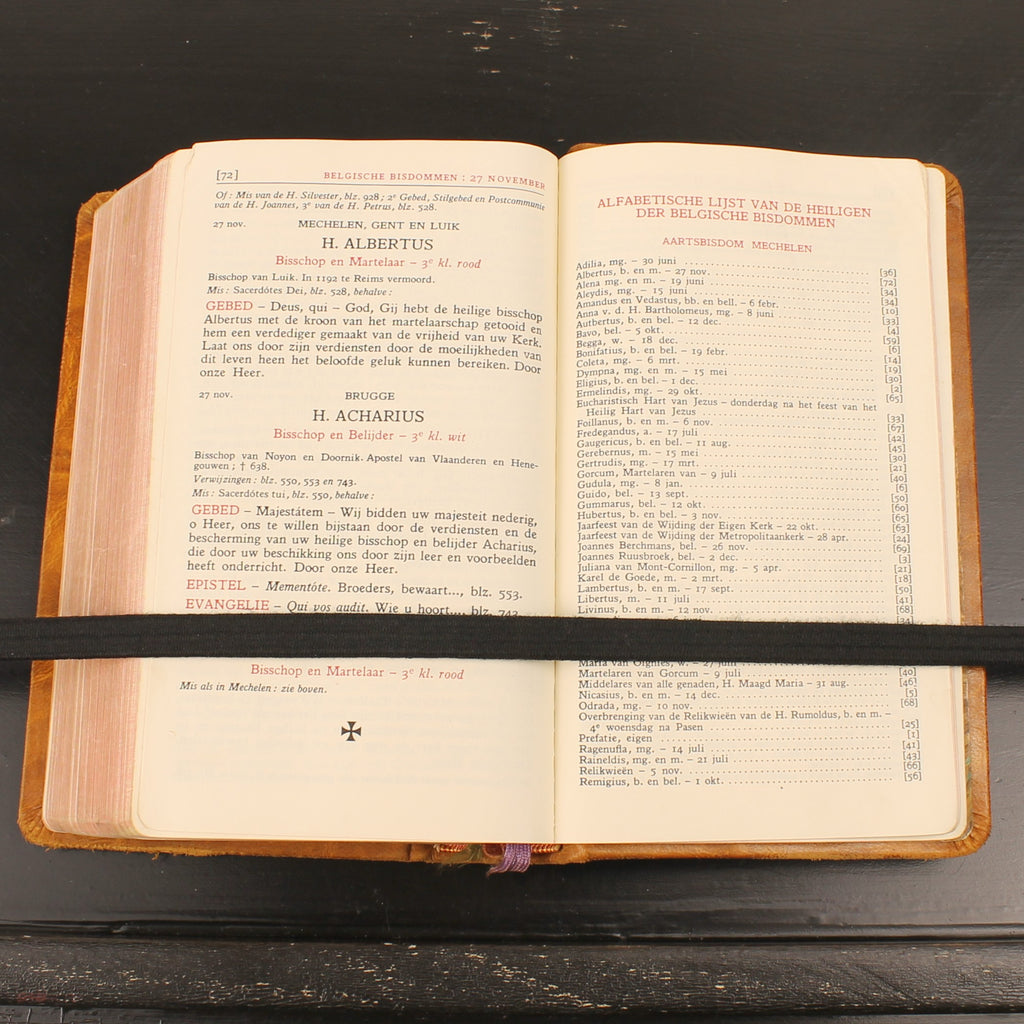 [72] BELGISCHE BISDOMMEN : 27 NOVEMBER
Of : Mis van de H. Silvester, blz. 928 ; 2e Gebed, Stilgebed en Postcommunie
van de H. Joannes, 3e van de H. Petrus, blz. 528.
27 nov. MECHELEN, GENT EN LUIK
H. ALBERTUS
Bisschop en Martelaar – 3e kl. rood
Bisschop van Luik. In 1192 te Reims vermoord.
Mis : Sacerdótes Dei, blz. 528, behalve :
GEBED – Deus, qui – God, Gij hebt de heilige bisschop
Albertus met de kroon van het martelaarschap getooid en
hem een verdediger gemaakt van de vrijheid van uw Kerk.
Laat ons door zijn verdiensten door de moeilijkheden van
dit leven heen het beloofde geluk kunnen bereiken. Door
onze Heer.
27 nov. BRUGGE
H. ACHARIUS
Bisschop en Belijder – 3e kl. wit
Bisschop van Noyon en Doornik. Apostel van Vlaanderen en Hene-
gouwen ; † 638.
Verwijzingen : blz. 550, 553 en 743.
Mis : Sacerdótes tui, blz. 550, behalve :
GEBED – Majestátem – Wij bidden uw majesteit nederig,
o Heer, ons te willen bijstaan door de verdiensten en de
bescherming van uw heilige bisschop en belijder Acharius,
die door uw beschikking ons door zijn leer en voorbeelden
heeft onderricht. Door onze Heer.
EPISTEL – Mementóte. Broeders, bewaart..., blz. 553.
EVANGELIE – Qui vos audit. Wie u hoort..., blz. 743.
Bisschop en Martelaar – 3e kl. rood
Mis als in Mechelen : zie boven.
ALFABETISCHE LIJST VAN DE HEILIGEN
DER BELGISCHE BISDOMMEN
AARTSBISDOM MECHELEN
Adilia, mg. – 30 juni [36]
Albertus, b. en m. – 27 nov. [72]
Alena mg. en m. – 19 juni [34]
Aleydis, mg. – 15 juni [34]
Amandus en Vedastus, bb. en bell. – 6 febr. [10]
Anna v. d. H. Bartholomeus, mg. – 8 juni [33]
Autbertus, b. en bel. – 12 dec. [4]
Bavo, bel. – 5 okt. [59]
Begga, w. – 18 dec. [6]
Bonifatius, b. en bel. – 19 febr. [14]
Coleta, mg. – 6 mrt. [19]
Dympna, mg. en m. – 15 mei [30]
Eligius, b. en bel. – 1 dec. [2]
Ermelindis, mg. – 29 okt. [65]
Eucharistisch Hart van Jezus – donderdag na het feest van het
Heilig Hart van Jezus [33]
Foillanus, b. en m. – 6 nov. [67]
Fredegandus, a. – 17 juli [42]
Gaugericus, b. en bel. – 11 aug. [45]
Gerebernus, m. – 15 mei [30]
Gertrudis, mg. – 17 mrt. [21]
Gorcum, Martelaren van – 9 juli [40]
Gudula, mg. – 8 jan. [6]
Guido, bel. – 13 sept. [50]
Gummarus, bel. – 12 okt. [60]
Hubertus, b. en bel. – 3 nov. [65]
Jaarfeest van de Wijding der Eigen Kerk – 22 okt. [63]
Jaarfeest van de Wijding der Metropolitaankerk – 28 apr. [24]
Joannes Berchmans, bel. – 26 nov. [69]
Joannes Ruusbroek, bel. – 2 dec. [3]
Juliana van Mont-Cornillon, mg. – 5 apr. [21]
Karel de Goede, m. – 2 mrt. [18]
Lambertus, b. en m. – 17 sept. [50]
Libertus, m. – 11 juli [41]
Livinus, b. en m. – 12 nov. [68]
[34]
Maria van Oignies, w. – 27 juni
Martelaren van Gorcum – 9 juli [40]
Middelares van alle genaden, H. Maagd Maria – 31 aug. [46]
Nicasius, b. en m. – 14 dec. [5]
Odrada, mg. – 10 nov. [68]
Overbrenging van de Relikwieën van de H. Rumoldus, b. en m. –
4e woensdag na Pasen [25]
Prefatie, eigen [1]
Ragenufla, mg. – 14 juli [41]
Raineldis, mg. en m. – 21 juli [43]
Relikwieën – 5 nov. [66]
Remigius, b. en bel. – 1 okt. [56]